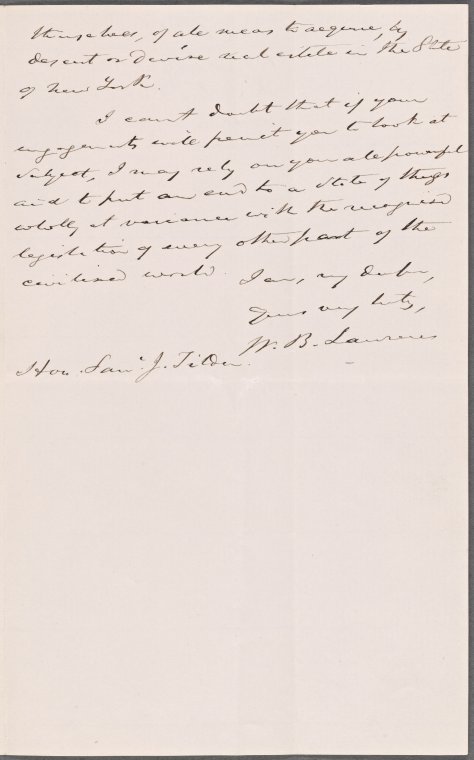 themselves, of all means to acquire, by
descent or devise real estate in the State
of New York.
I cannot doubt that if your
engagements will permit you to look at
subject, I may rely on your all powerful
aid to put an end to a state of things
wholly at variance with the recognised
legislation of every other part of the
civilised world.
I am, my dear Sir,
Yours very truly,
W. B. Lawrence
Hon. Saml. J. Tilden.